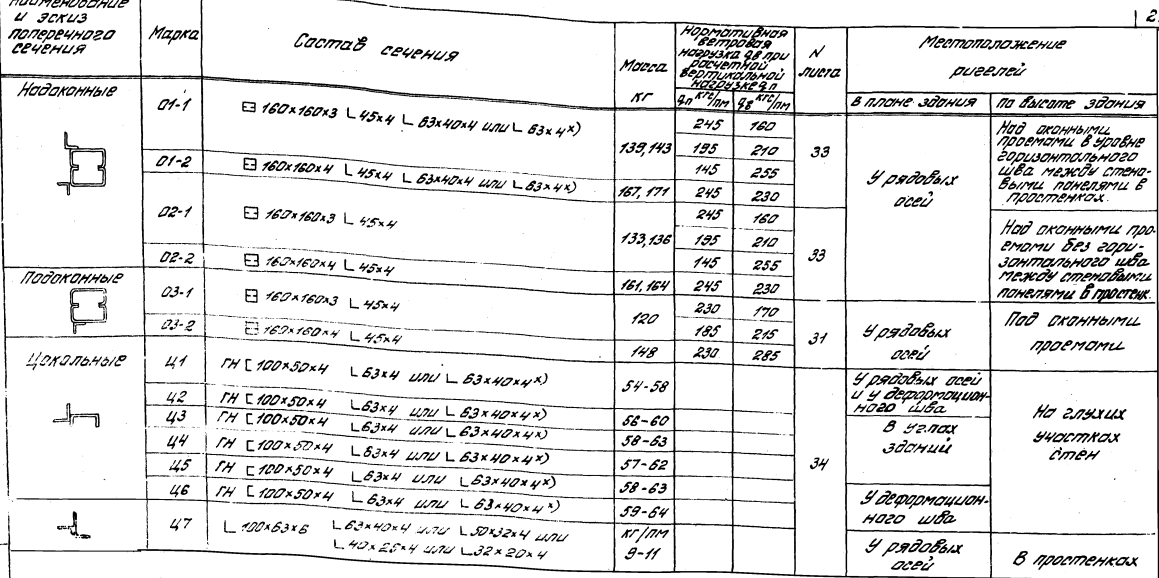 Наименование
и эскиз
поперечного
сечения
Марка
Состав сечения
Масса
кг
Нормативная
ветровая
нагрузка qв при
расчетной
вертикальной
нагрузке qп
qп кгс/пм qв кгс/пм
N
листа
Местоположение
ригелей
в плане здания по высоте здания
2
Надоконные
01-1 160×160×3 L 45×4 L 63×40×4 или L 63×4 ×)
139,143
245 160
195 210
145 255
33
У рядовых
осей
Над оконными
проемами в уровне
горизонтального
шва между стено-
выми панелями в
простенках.
01-2 160×160×4 L 45×4 L 63×40×4 или L 63×4 ×)
167, 171 245 230
02-1 160×160×3 L 45×4
133,136
245 160
195 210
145 255
33
Над оконными про-
емами без гори-
зонтального шва
между стеновыми
панелями в простенк.
02-2 160×160×4 L 45×4
161, 164 245 230
Подоконные
03-1 160×160×3 L 45×4
120
230 170
185 215
31
У рядовых
осей
Под оконными
проемами
03-2 160×160×4 L 45×4
148 230 285
Цокольные
Ц1 ГН [ 100×50×4 L 63×4 или L 63×40×4 ×) 54-58
У рядовых осей
и у деформацион-
ного шва
Ц2 ГН [ 100×50×4 L 63×4 или L 63×40×4 ×) 56-60
Ц3 ГН [ 100×50×4 L 63×4 или L 63×40×4 ×) 58-63
Ц4 ГН [ 100×50×4 L 63×4 или L 63×40×4 ×) 57-62
Ц5 ГН [ 100×50×4 L 63×4 или L 63×40×4 ×) 58-63
В углах
зданий
34
На глухих
участках
стен
Ц6 ГН [ 100×50×4 L 63×4 или L 63×40×4 ×) 59-64
У деформацион-
ного шва
Ц7 L 100×63×6 L 63×40×4 или L 50×32×4 или
L 40×25×4 или L 32×20×4
кг/пм
9-11
У рядовых
осей
В простенках